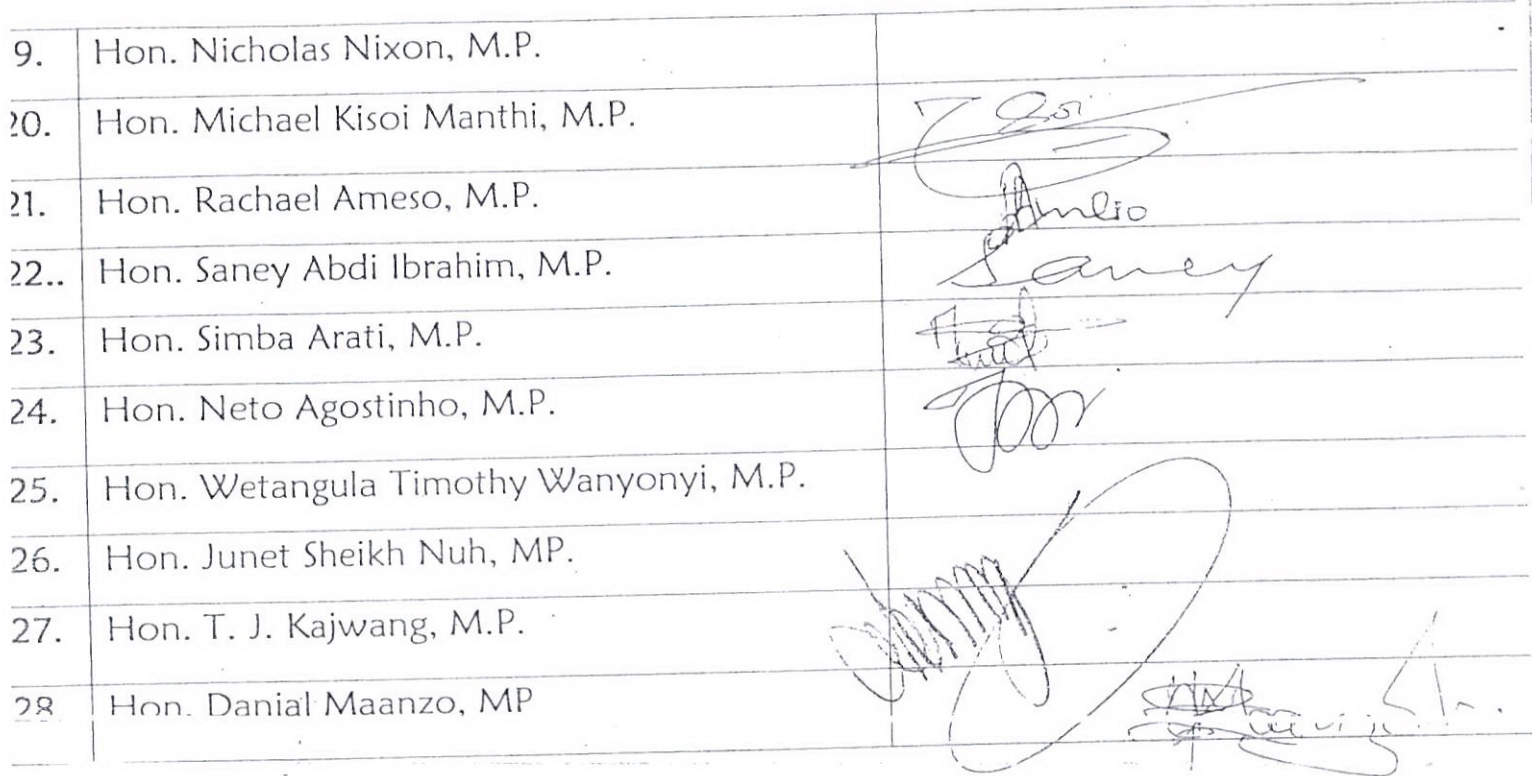 9. Hon. Nicholas Nixon, M.P.
20. Hon. Michael Kisoi Manthi, M.P.
21. Hon. Rachael Ameso, M.P.
22.. Hon. Saney Abdi Ibrahim, M.P. Saney
23. Hon. Simba Arati, M.P.
24. Hon. Neto Agostinho, M.P.
25. Hon. Wetangula Timothy Wanyonyi, M.P.
26. Hon. Junet Sheikh Nuh, MP.
27. Hon. T. J. Kajwang, M.P.
28 Hon. Danial Maanzo, MP